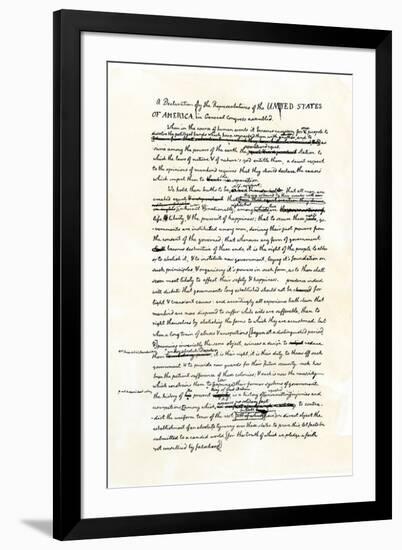 A Declaration by the Representatives of the UNITED STATES
OF AMERICA, in General Congress assembled.
When in the course of human events it becomes necessary for people to
dissolve the political bands which have connected them with another, and to
assume among the powers of the earth the station to
which the laws of nature & of nature's god entitle them, a decent respect
to the opinions of mankind requires that they should declare the causes
which impel them to the separation.
We hold these truths to be that all men are
created equal
life & liberty, & the pursuit of happiness; that to secure these rights, go-
-vernments are instituted among men, deriving their just powers from
the consent of the governed; that whenever any form of government
becomes destructive of these ends, it is the right of the people to alter
or to abolish it, & to institute new government, laying it's foundation on
such principles & organising it's powers in such form, as to them shall
seem most likely to effect their safety & happiness. prudence indeed
will dictate that governments long established should not be changed for
light & transient causes: and accordingly all experience hath shewn that
mankind are more disposed to suffer while evils are sufferable, than to
right themselves by abolishing the forms to which they are accustomed. but
when a long train of abuses & usurpations [begun at a distinguished period
& pursuing invariably the same object, evinces a design to reduce
them it is their right, it is their duty to throw off such
government & to provide new guards for their future security. such has
been the patient sufferance of these colonies; & such is now the necessity
which constrains them to [expunge] their former systems of government.
the history of present is a history of injuries and
usurpations, [among which, to contra-
-dict the uniform tenor of the rest in direct object the
establishment of an absolute tyranny over these states. to prove this let facts be
submitted to a candid world, [for the truth of which we pledge a faith
yet unsullied by falsehood]